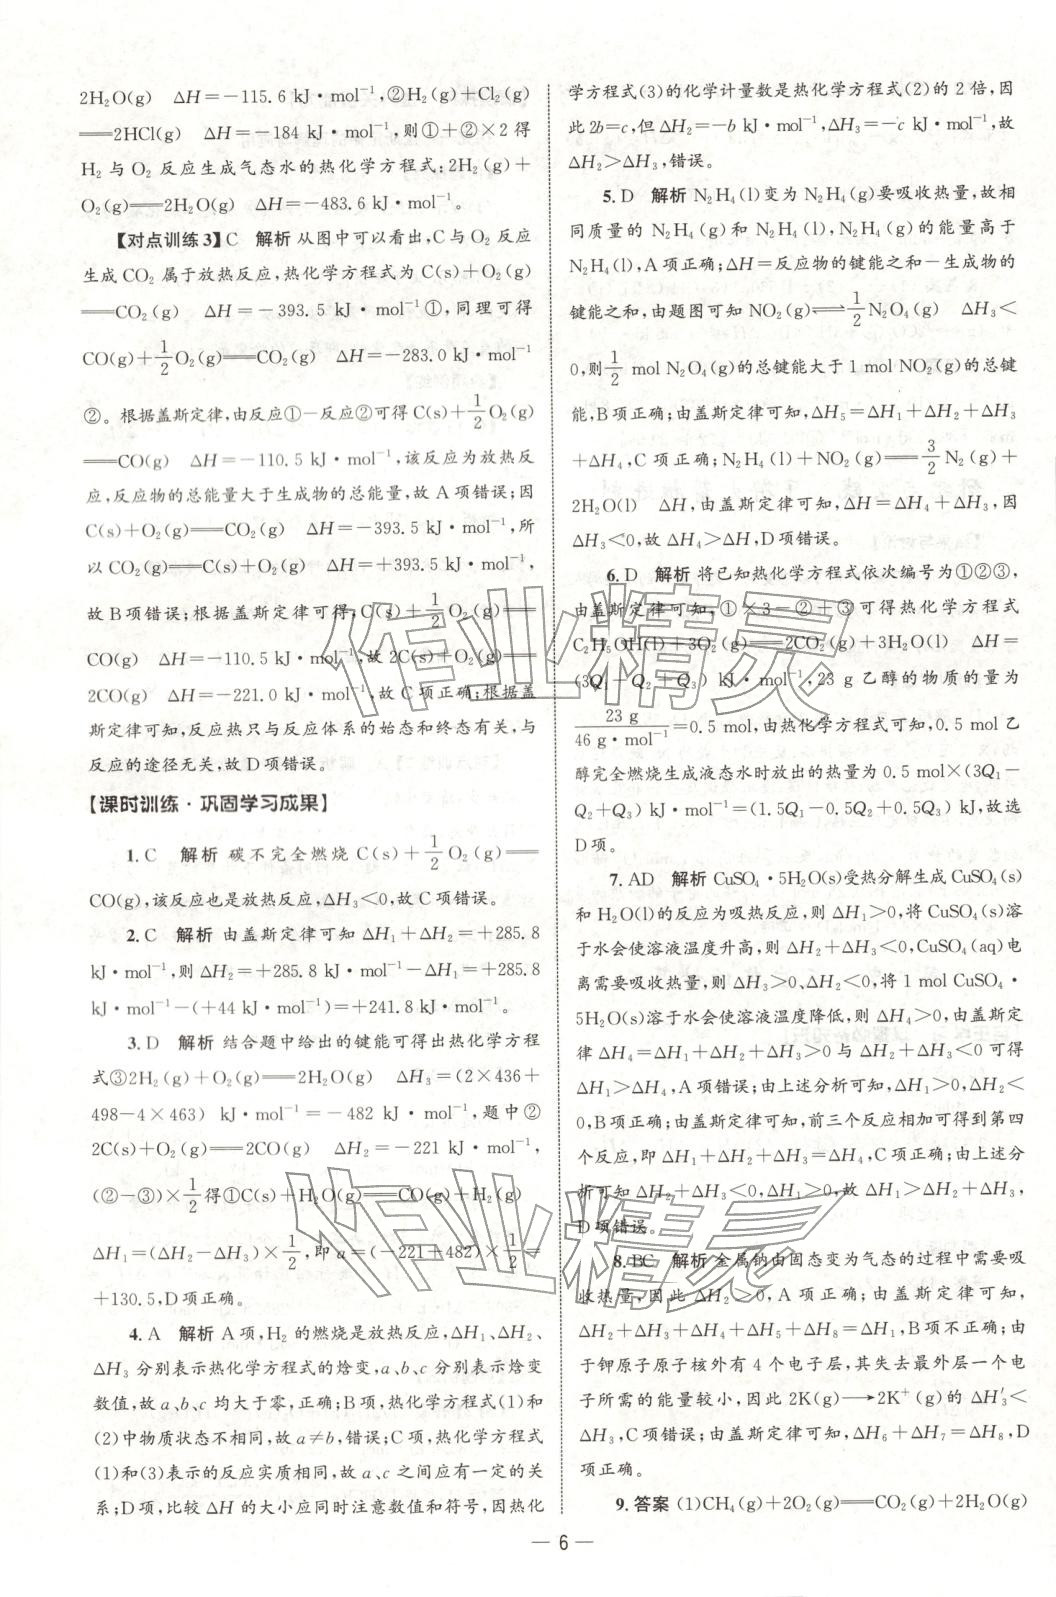 2H₂O(g)　ΔH=－115.6 kJ·mol⁻¹,②H₂(g)+Cl₂(g)
══2HCl(g)　ΔH=－184 kJ·mol⁻¹,则①+②×2得
H₂与O₂反应生成气态水的热化学方程式:2H₂(g)+
O₂(g)══2H₂O(g)　ΔH=－483.6 kJ·mol⁻¹。
【对点训练3】C　解析　从图中可以看出,C与O₂反应
生成CO₂属于放热反应,热化学方程式为C(s)+O₂(g)
══CO₂(g)　ΔH=－393.5 kJ·mol⁻¹①,同理可得
CO(g)+1/2O₂(g)══CO₂(g)　ΔH=－283.0 kJ·mol⁻¹
②。根据盖斯定律,由反应①－反应②可得C(s)+1/2O₂(g)
══CO(g)　ΔH=－110.5 kJ·mol⁻¹,该反应为放热反
应,反应物的总能量大于生成物的总能量,故A项错误;因
C(s)+O₂(g)══CO₂(g)　ΔH=－393.5 kJ·mol⁻¹,所
以CO₂(g)══C(s)+O₂(g)　ΔH=+393.5 kJ·mol⁻¹,
故B项错误;根据盖斯定律可得,C(s)+1/2O₂(g)══
CO(g)　ΔH=－110.5 kJ·mol⁻¹,故2C(s)+O₂(g)══
2CO(g)　ΔH=－221.0 kJ·mol⁻¹,故C项正确;根据盖
斯定律可知,反应热只与反应体系的始态和终态有关,与
反应的途径无关,故D项错误。
【课时训练·巩固学习成果】
1.C　解析　碳不完全燃烧C(s)+1/2O₂(g)══
CO(g),该反应也是放热反应,ΔH₃<0,故C项错误。
2.C　解析　由盖斯定律可知ΔH₁+ΔH₂=+285.8
kJ·mol⁻¹,则ΔH₂=+285.8 kJ·mol⁻¹－ΔH₁=+285.8
kJ·mol⁻¹－(+44 kJ·mol⁻¹)=+241.8 kJ·mol⁻¹。
3.D　解析　结合题中给出的键能可得出热化学方程
式③2H₂(g)+O₂(g)══2H₂O(g)　ΔH₃=(2×436+
498－4×463) kJ·mol⁻¹=－482 kJ·mol⁻¹,题中②
2C(s)+O₂(g)══2CO(g)　ΔH₂=－221 kJ·mol⁻¹,
(②－③)×1/2得①C(s)+H₂O(g)══CO(g)+H₂(g)
ΔH₁=(ΔH₂－ΔH₃)×1/2,即a=(－221+482)×1/2=
+130.5,D项正确。
4.A　解析　A项,H₂的燃烧是放热反应,ΔH₁、ΔH₂、
ΔH₃分别表示热化学方程式的焓变,a、b、c分别表示焓变
数值,故a、b、c均大于零,正确;B项,热化学方程式(1)和
(2)中物质状态不相同,故a≠b,错误;C项,热化学方程式
(1)和(3)表示的反应实质相同,故a、c之间应有一定的关
系;D项,比较ΔH的大小应同时注意数值和符号,因热化
学方程式(3)的化学计量数是热化学方程式(2)的2倍,因
此2b=c,但ΔH₂=－b kJ·mol⁻¹,ΔH₃=－c kJ·mol⁻¹,故
ΔH₂>ΔH₃,错误。
5.D　解析　N₂H₄(l)变为N₂H₄(g)要吸收热量,故相
同质量的N₂H₄(g)和N₂H₄(l),N₂H₄(g)的能量高于
N₂H₄(l),A项正确;ΔH=反应物的键能之和－生成物的
键能之和,由题图可知NO₂(g)⇌1/2N₂O₄(g)　ΔH₃<
0,则1/2 mol N₂O₄(g)的总键能大于1 mol NO₂(g)的总键
能,B项正确;由盖斯定律可知,ΔH₅=ΔH₁+ΔH₂+ΔH₃
+ΔH₄,C项正确;N₂H₄(l)+NO₂(g)══3/2N₂(g)+
2H₂O(l)　ΔH,由盖斯定律可知,ΔH=ΔH₄+ΔH₃,因
ΔH₃<0,故ΔH₄>ΔH,D项错误。
6.D　解析　将已知热化学方程式依次编号为①②③,
由盖斯定律可知,①×3－②+③可得热化学方程式
C₂H₅OH(l)+3O₂(g)══2CO₂(g)+3H₂O(l)　ΔH=
(3Q₁－Q₂+Q₃) kJ·mol⁻¹,23 g乙醇的物质的量为
23 g/46 g·mol⁻¹=0.5 mol,由热化学方程式可知,0.5 mol乙
醇完全燃烧生成液态水时放出的热量为0.5 mol×(3Q₁－
Q₂+Q₃) kJ·mol⁻¹=(1.5Q₁－0.5Q₂+0.5Q₃) kJ,故选
D项。
7.AD　解析　CuSO₄·5H₂O(s)受热分解生成CuSO₄(s)
和H₂O(l)的反应为吸热反应,则ΔH₁>0,将CuSO₄(s)溶
于水会使溶液温度升高,则ΔH₂+ΔH₃<0,CuSO₄(aq)电
离需要吸收热量,则ΔH₃>0,ΔH₂<0,将1 mol CuSO₄·
5H₂O(s)溶于水会使溶液温度降低,则ΔH₄>0,由盖斯定
律ΔH₄=ΔH₁+ΔH₂+ΔH₃>0与ΔH₂+ΔH₃<0可得
ΔH₁>ΔH₄,A项错误;由上述分析可知,ΔH₁>0,ΔH₂<
0,B项正确;由盖斯定律可知,前三个反应相加可得到第四
个反应,即ΔH₁+ΔH₂+ΔH₃=ΔH₄,C项正确;由上述分
析可知ΔH₂+ΔH₃<0,ΔH₁>0,故ΔH₁>ΔH₂+ΔH₃,
D项错误。
8.BC　解析　金属钠由固态变为气态的过程中需要吸
收热量,因此ΔH₂>0,A项正确;由盖斯定律可知,
ΔH₂+ΔH₃+ΔH₄+ΔH₅+ΔH₈=ΔH₁,故B项错误;由
于钾原子原子核外有4个电子层,其失去最外层一个电
子所需的能量较小,因此2K(g)⟶2K⁺(g)的ΔH₃′<
ΔH₃,C项错误;由盖斯定律可知,ΔH₆+ΔH₇=ΔH₈,D
项正确。
9.答案　(1)CH₄(g)+2O₂(g)══CO₂(g)+2H₂O(g)
— 6 —
作业精灵
作业精灵